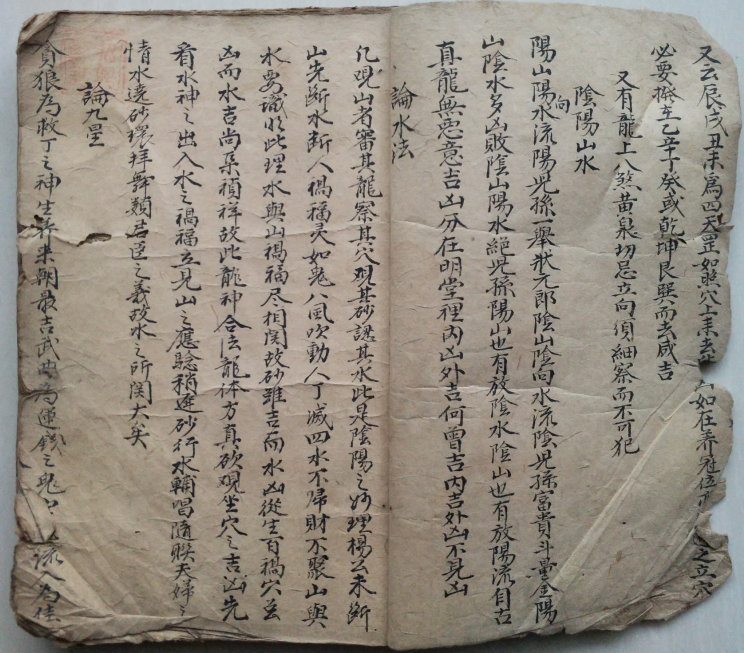 又云辰戌丑未為四天罡如熙穴上来去 如在养冠位 之立穴
必要撥至乙辛丁癸或乾坤艮巽而去咸吉
又有龍上八煞黄泉切忌立向須細察而不可犯
陰陽山水
陽山陽向水流陽児孫一舉状元郎陰山陰向水流陰児孫富貴斗量金陽
山陰水多凶敗陰山陽水絕児孫陽山也有放陰水陰山也有放陽流自古
真龍無惡意吉凶分在明堂裡内凶外吉何曾吉内吉外凶不見凶
論水法
凡覌山者審其龍察其穴覌其砂認其水此是陰陽之妙理楊公未断
山先断水断人禍福灵如鬼八風吹動人丁滅四水不歸財不聚山與
水要識得此理水與山禍福尽相関故砂雖吉而水凶從生百禍穴虽
凶而水吉尚枭禎祥故此龍神合法龍体方真欲覌坐穴之吉凶先
看水神之出入水之禍福立見山之應騐稍遲砂行水輔唱隨联夫婦之
情水遶砂環拜舞類君臣之義故水之所関大矣
論九星
貪狼為救丁之神生斈未朝最吉武曲為運錢之鬼 流入為佳